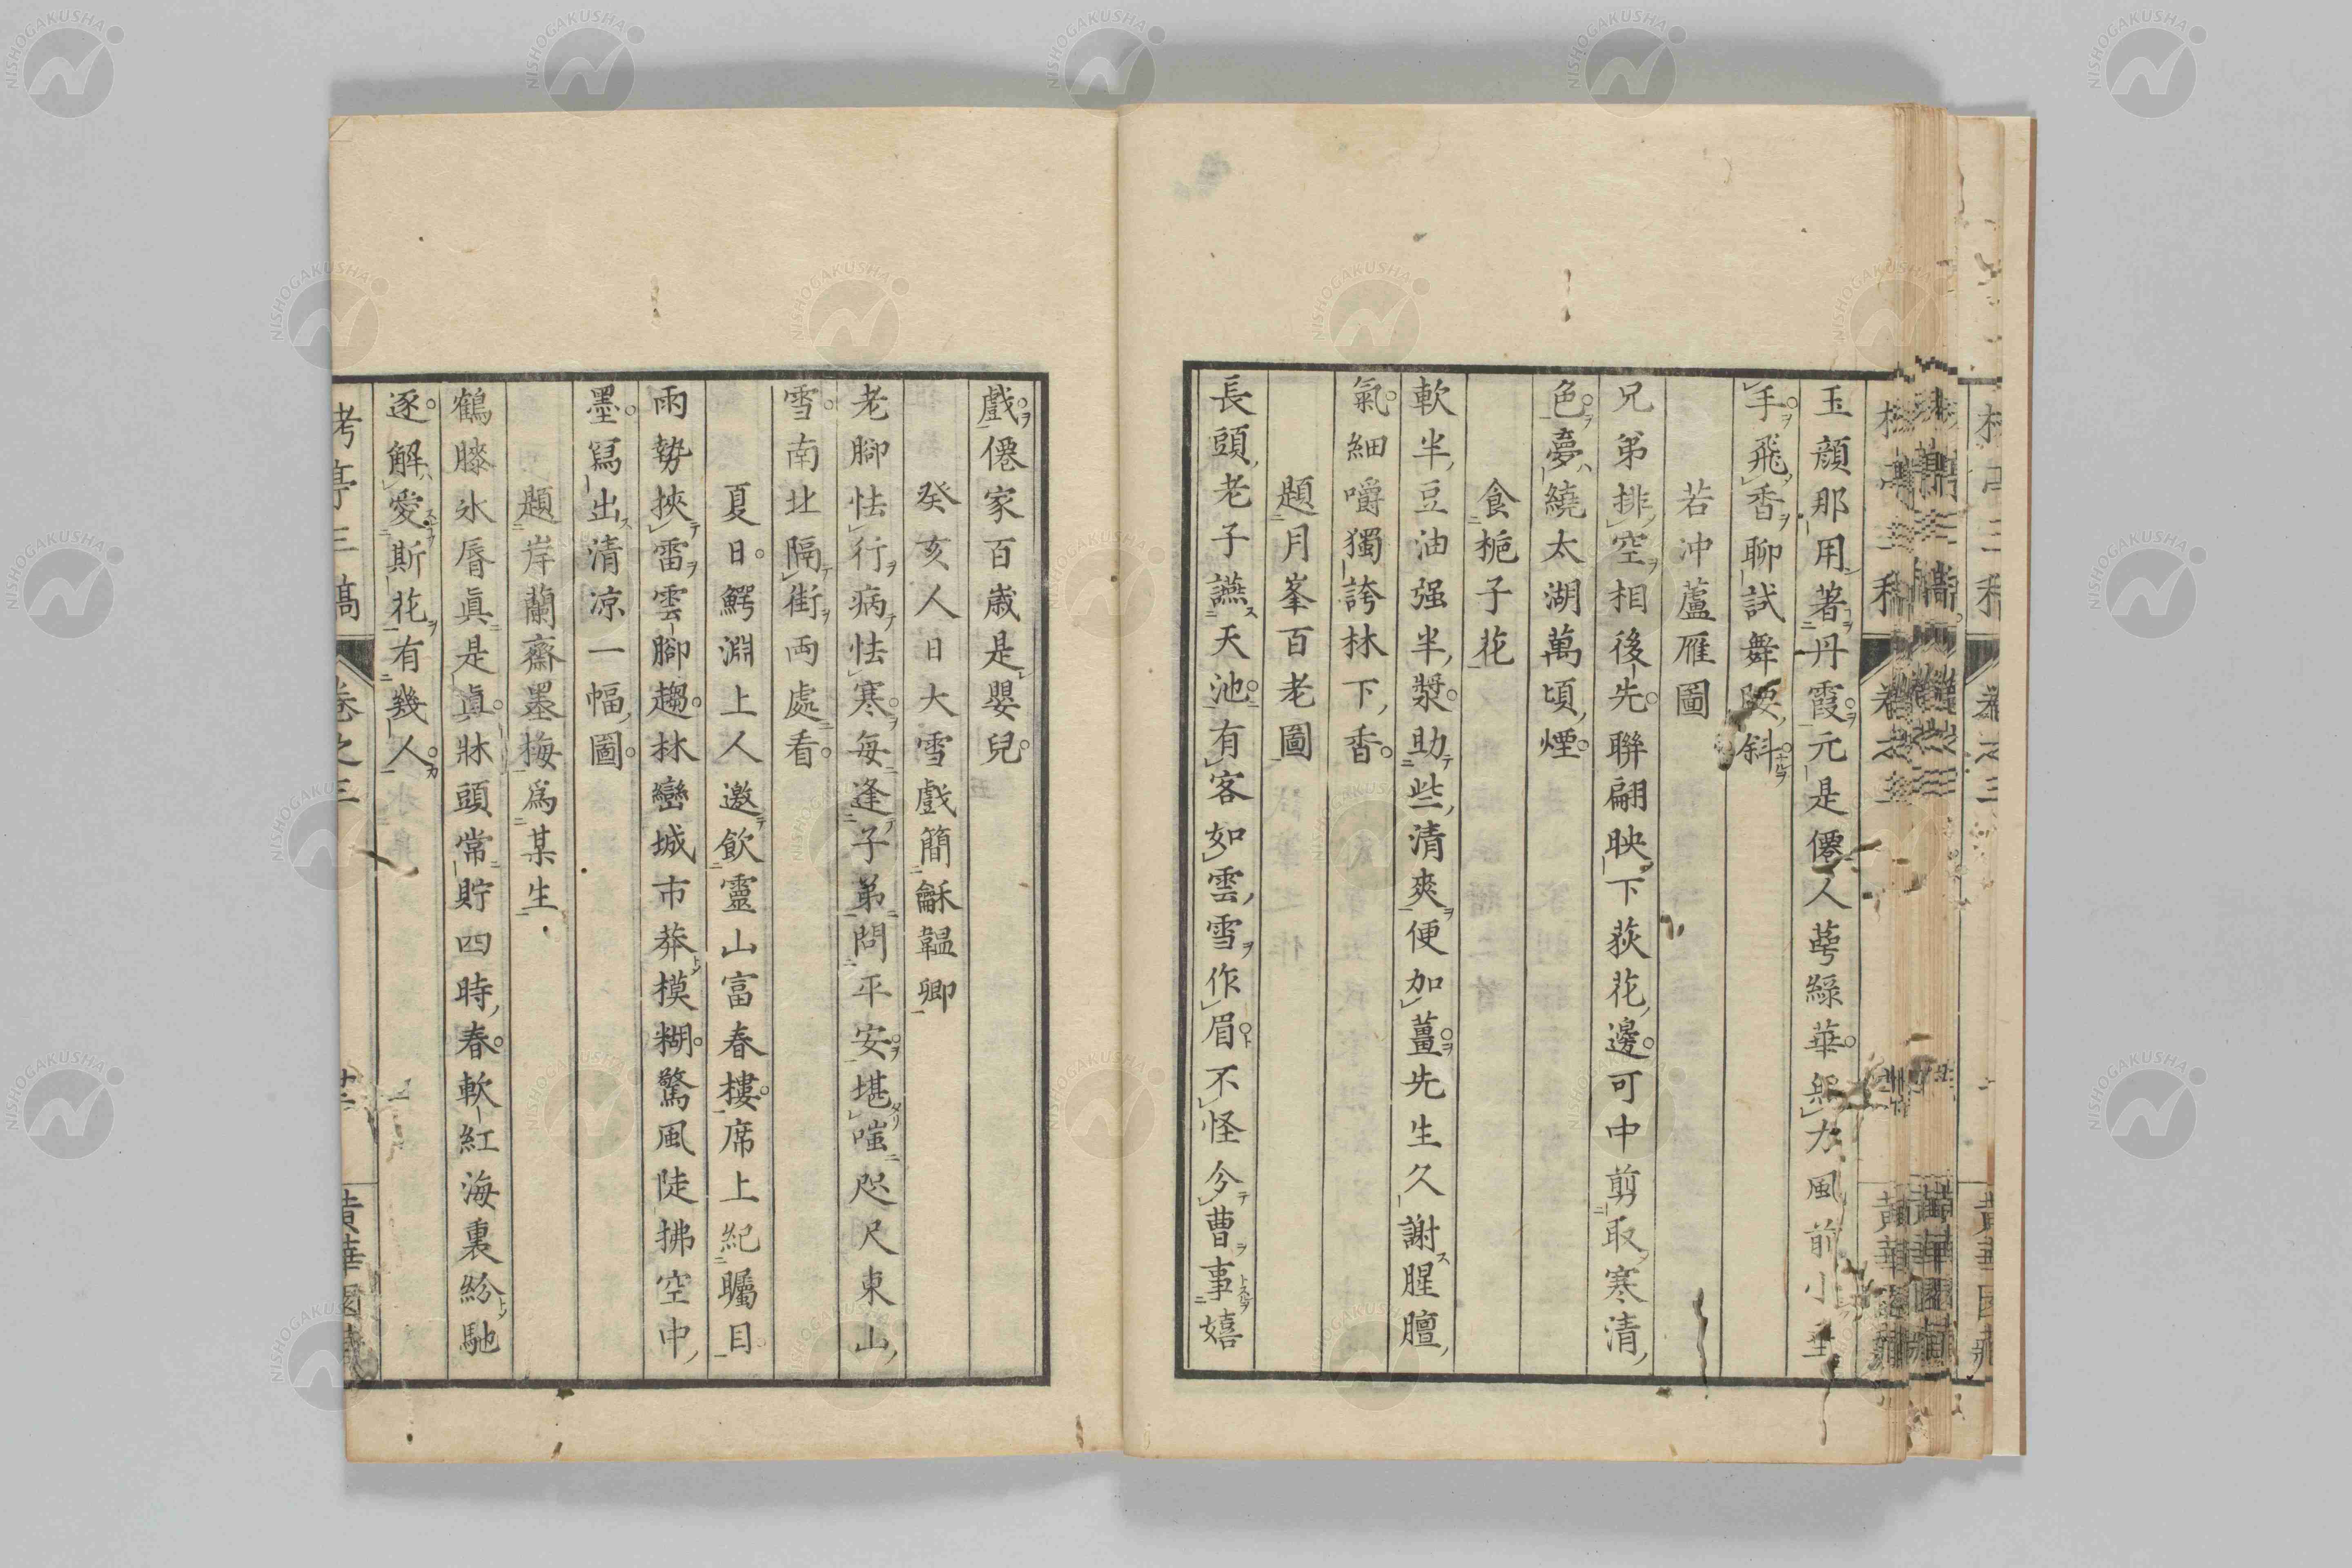 玉顏那用著丹霞元是僊人萼綠華無力風前小垂
手飛香聊試舞腰斜
若冲蘆雁圖
兄弟排空相後先聯翩映下荻花邊可中剪取寒清
色夢繞太湖萬頃煙
食梔子花
軟半豆油强半漿助些清爽便加薑先生久謝腥膻
氣細嚼獨誇林下香
題月峯百老圖
長頭老子讌天池有客如雲雪作眉不怪今曹事嬉
戲僊家百歲是嬰兒
癸亥人日大雪戲簡龢韞卿
老腳怯行病怯寒每逢子弟問平安堪嗤咫尺東山
雪南北隔街両處看
夏日鰐淵上人邀飲靈山富春樓席上紀矚目
雨勢挾雷雲腳趨林巒城市莽模糊驚風陡拂空中
墨寫出清凉一幅圖
題岸蘭齋墨梅爲某生
鶴膝氷脣眞是眞牀頭常貯四時春軟紅海裏紛馳
逐解愛斯花有幾人
卷之三
NISHOGAKUSHA